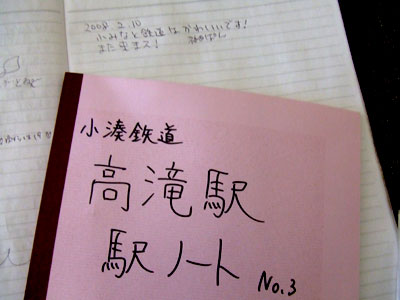 2008 2.10
小みなと鉄道はかわいいです!
また来ます!
小湊鉄道
高滝駅
駅ノート
No.3